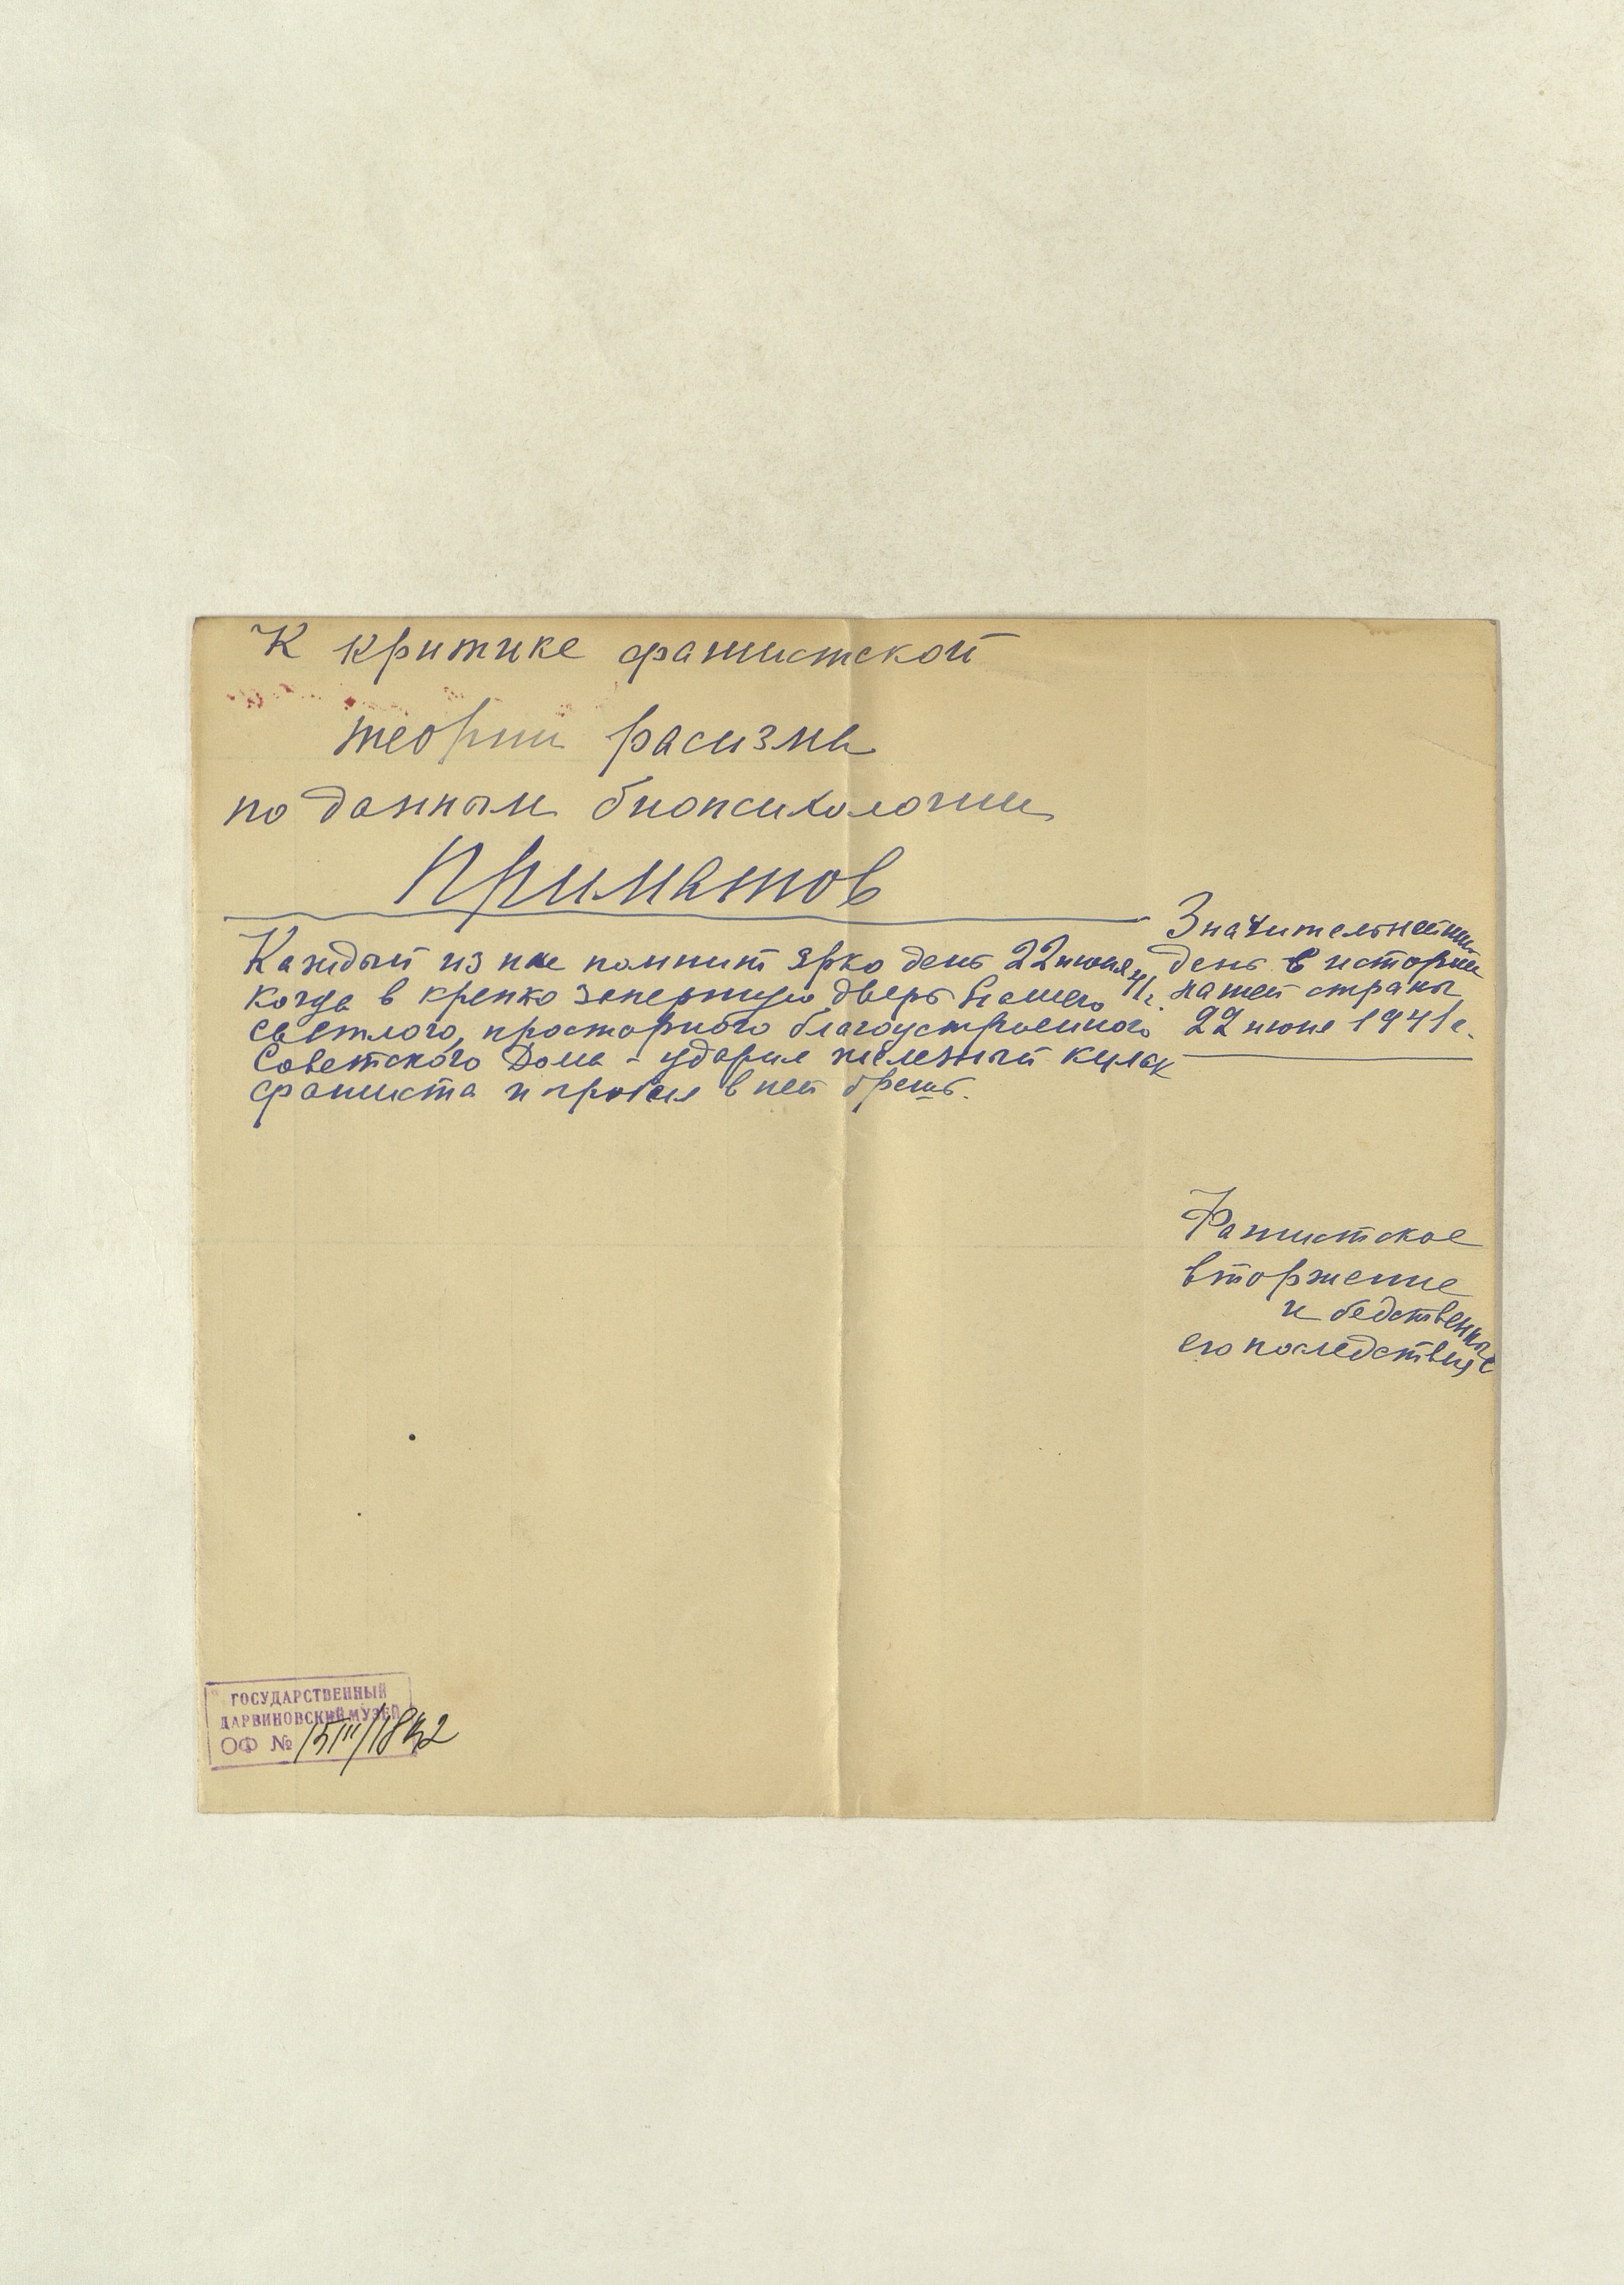 К критике фашистской
теории расизма
по данным биопсихологии
Приматов
Каждый из нас помнит ярко день 22 июня 41 г.
когда в крепко запертую дверь нашего
светлого, просторного благоустроенного
Советского Дома - ударил железный кулак
фашиста и пробил в ней брешь.
Значительнейший
день в истории
нашей страны
22 июня 1941 г.
Фашистское
вторжение
и бедственные
его последствия
ГОСУДАРСТВЕННЫЙ
ДАРВИНОВСКИЙ МУЗЕЙ
ОФ №